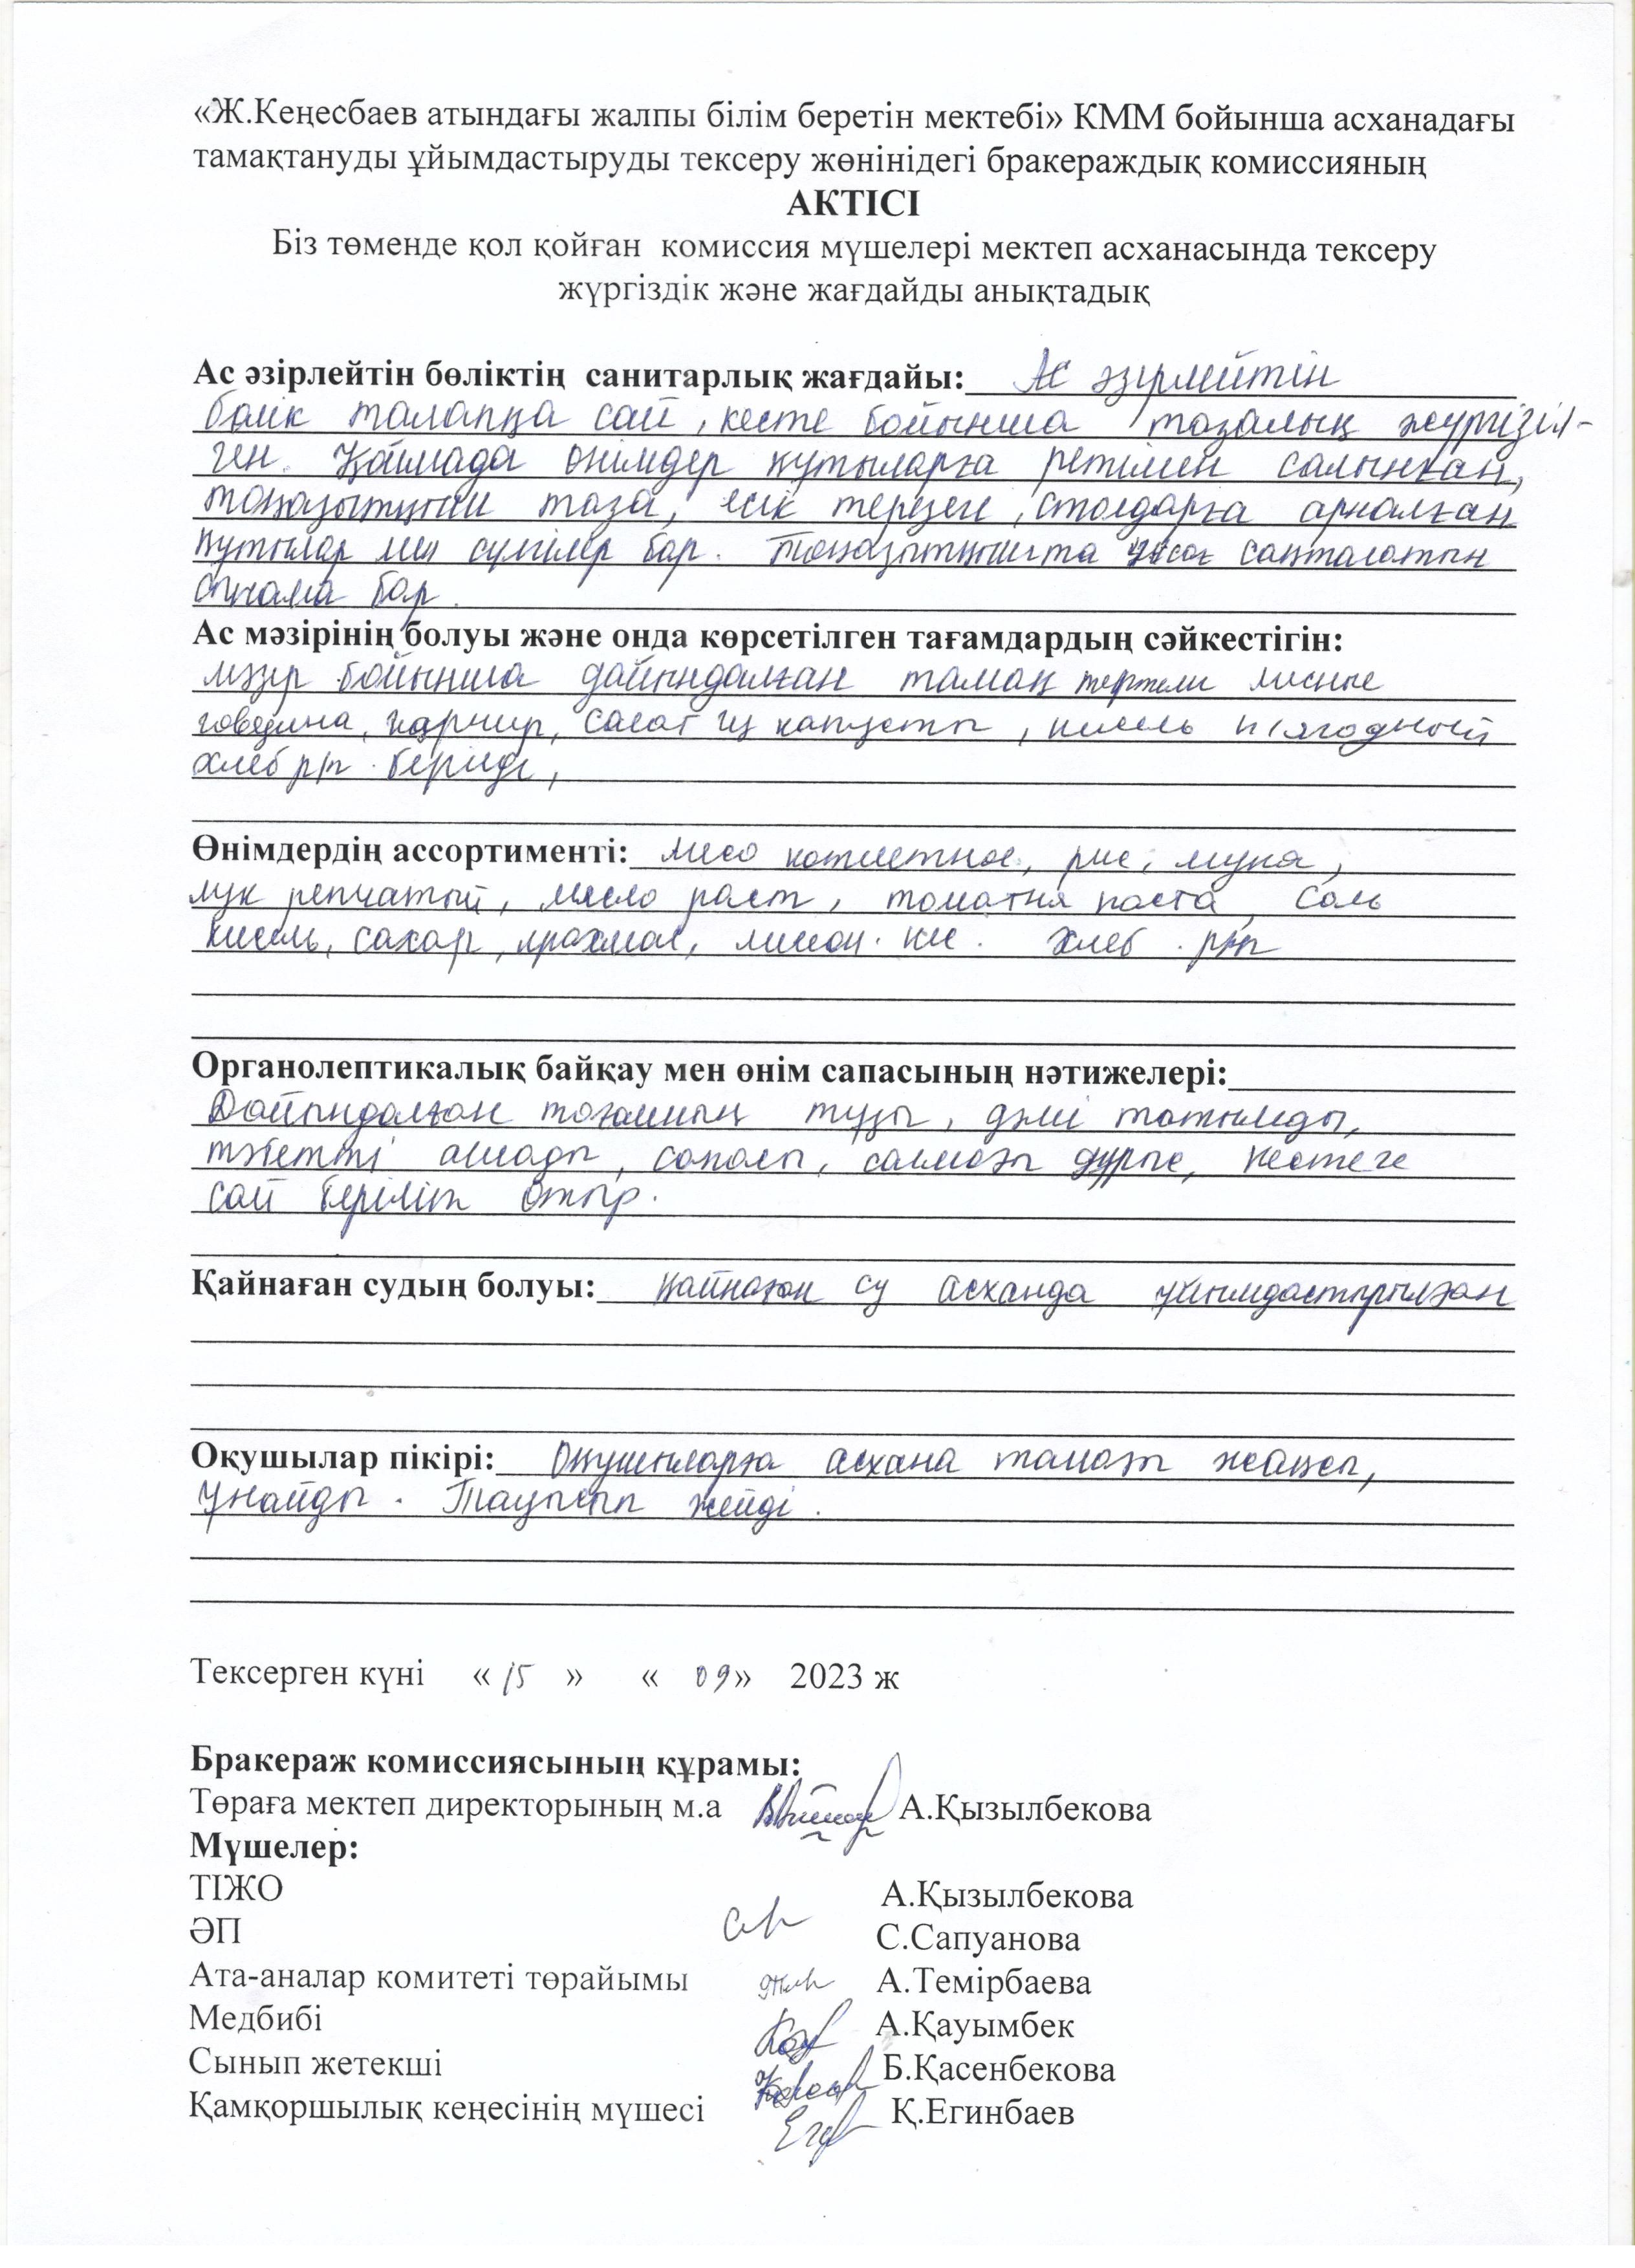 «Ж.Кеңесбаев атындағы жалпы білім беретін мектебі» КММ бойынша асханадағы
тамақтануды ұйымдастыруды тексеру жөнінідегі бракераждық комиссияның
АКТІСІ
Біз төменде қол қойған комиссия мүшелері мектеп асханасында тексеру
жүргіздік және жағдайды анықтадық
Ас әзірлейтін бөліктің санитарлық жағдайы: Ас әзірлейтін
бөлік талапқа сай, кесте бойынша тазалық жүргізіл-
ген. Қоймада өнімдер құтыларға ретімен салынған,
тоңазытқыш таза, есік терезеге, столдарға арналған
құтылар мен сүлгілер бар. Тоңазытқышта сақталатын
сынама бар.
Ас мәзірінің болуы және онда көрсетілген тағамдардың сәйкестігін:
мәзір бойынша дайындалған тамақ мясные
говядина, гарнир, салат из капусты, кисель п/ягодный
хлеб р/п берілді,
Өнімдердің ассортименті: мясо котлетное, рис, мука,
лук репчатый, масло раст, томатня паста, соль
кисель, сахар, крахмал, лимон. кис. хлеб. р/п
Органолептикалық байқау мен өнім сапасының нәтижелері:
Дайындалған тағамның тұзы, дәмі татымды,
тәбетті ашады, сапалы, салмағы дұрыс, кестеге
сай беріліп отыр.
Қайнаған судың болуы: Қайнаған су асханда ұйымдастырылған
Оқушылар пікірі: Оқушыларға асхана тамағы жақсы,
ұнайды. Тауысып жейді.
Тексерген күні « 15 » « 09» 2023 ж
Бракераж комиссиясының құрамы:
Төраға мектеп директорының м.а А.Қызылбекова
Мүшелер:
ТІЖО А.Қызылбекова
ӘП С.Сапуанова
Ата-аналар комитеті төрайымы А.Темірбаева
Медбибі А.Қауымбек
Сынып жетекші Б.Қасенбекова
Қамқоршылық кеңесінің мүшесі Қ.Егинбаев